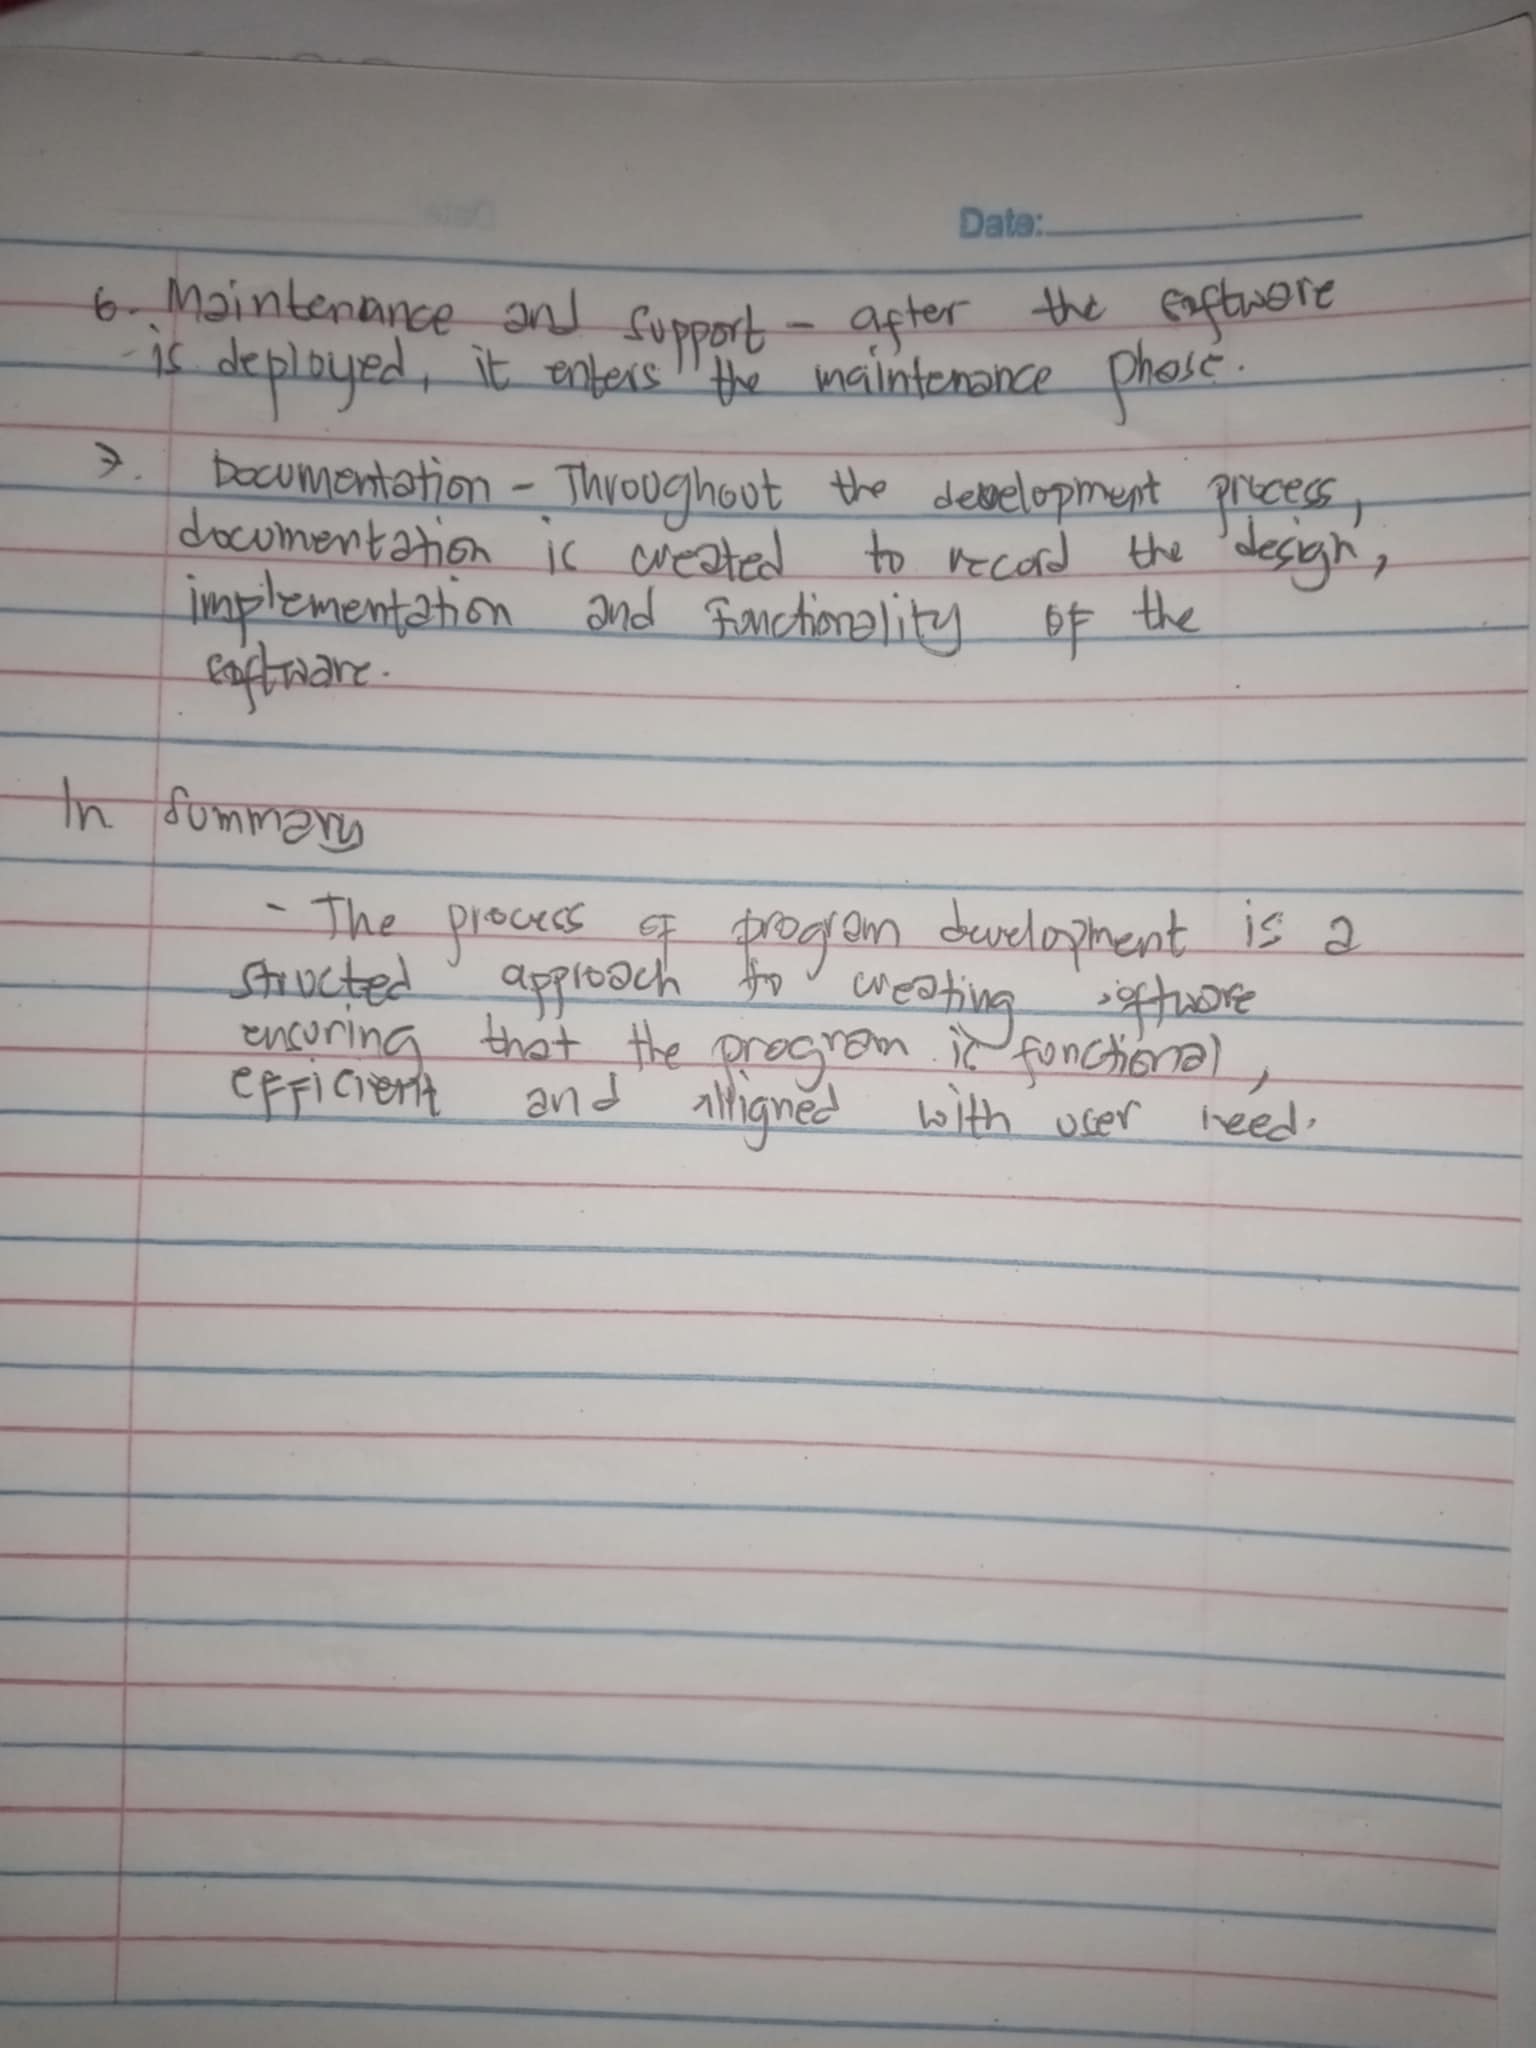 Date:
6. Maintenance and support - after the software
is deployed, it enters the maintenance phase.
7. Documentation - Throughout the development process,
documentation is created to record the design,
implementation and functionality of the
software.
In Summary
- The process of program development is a
structed approach to creating software
ensuring that the program is functional,
efficient and alligned with user need.